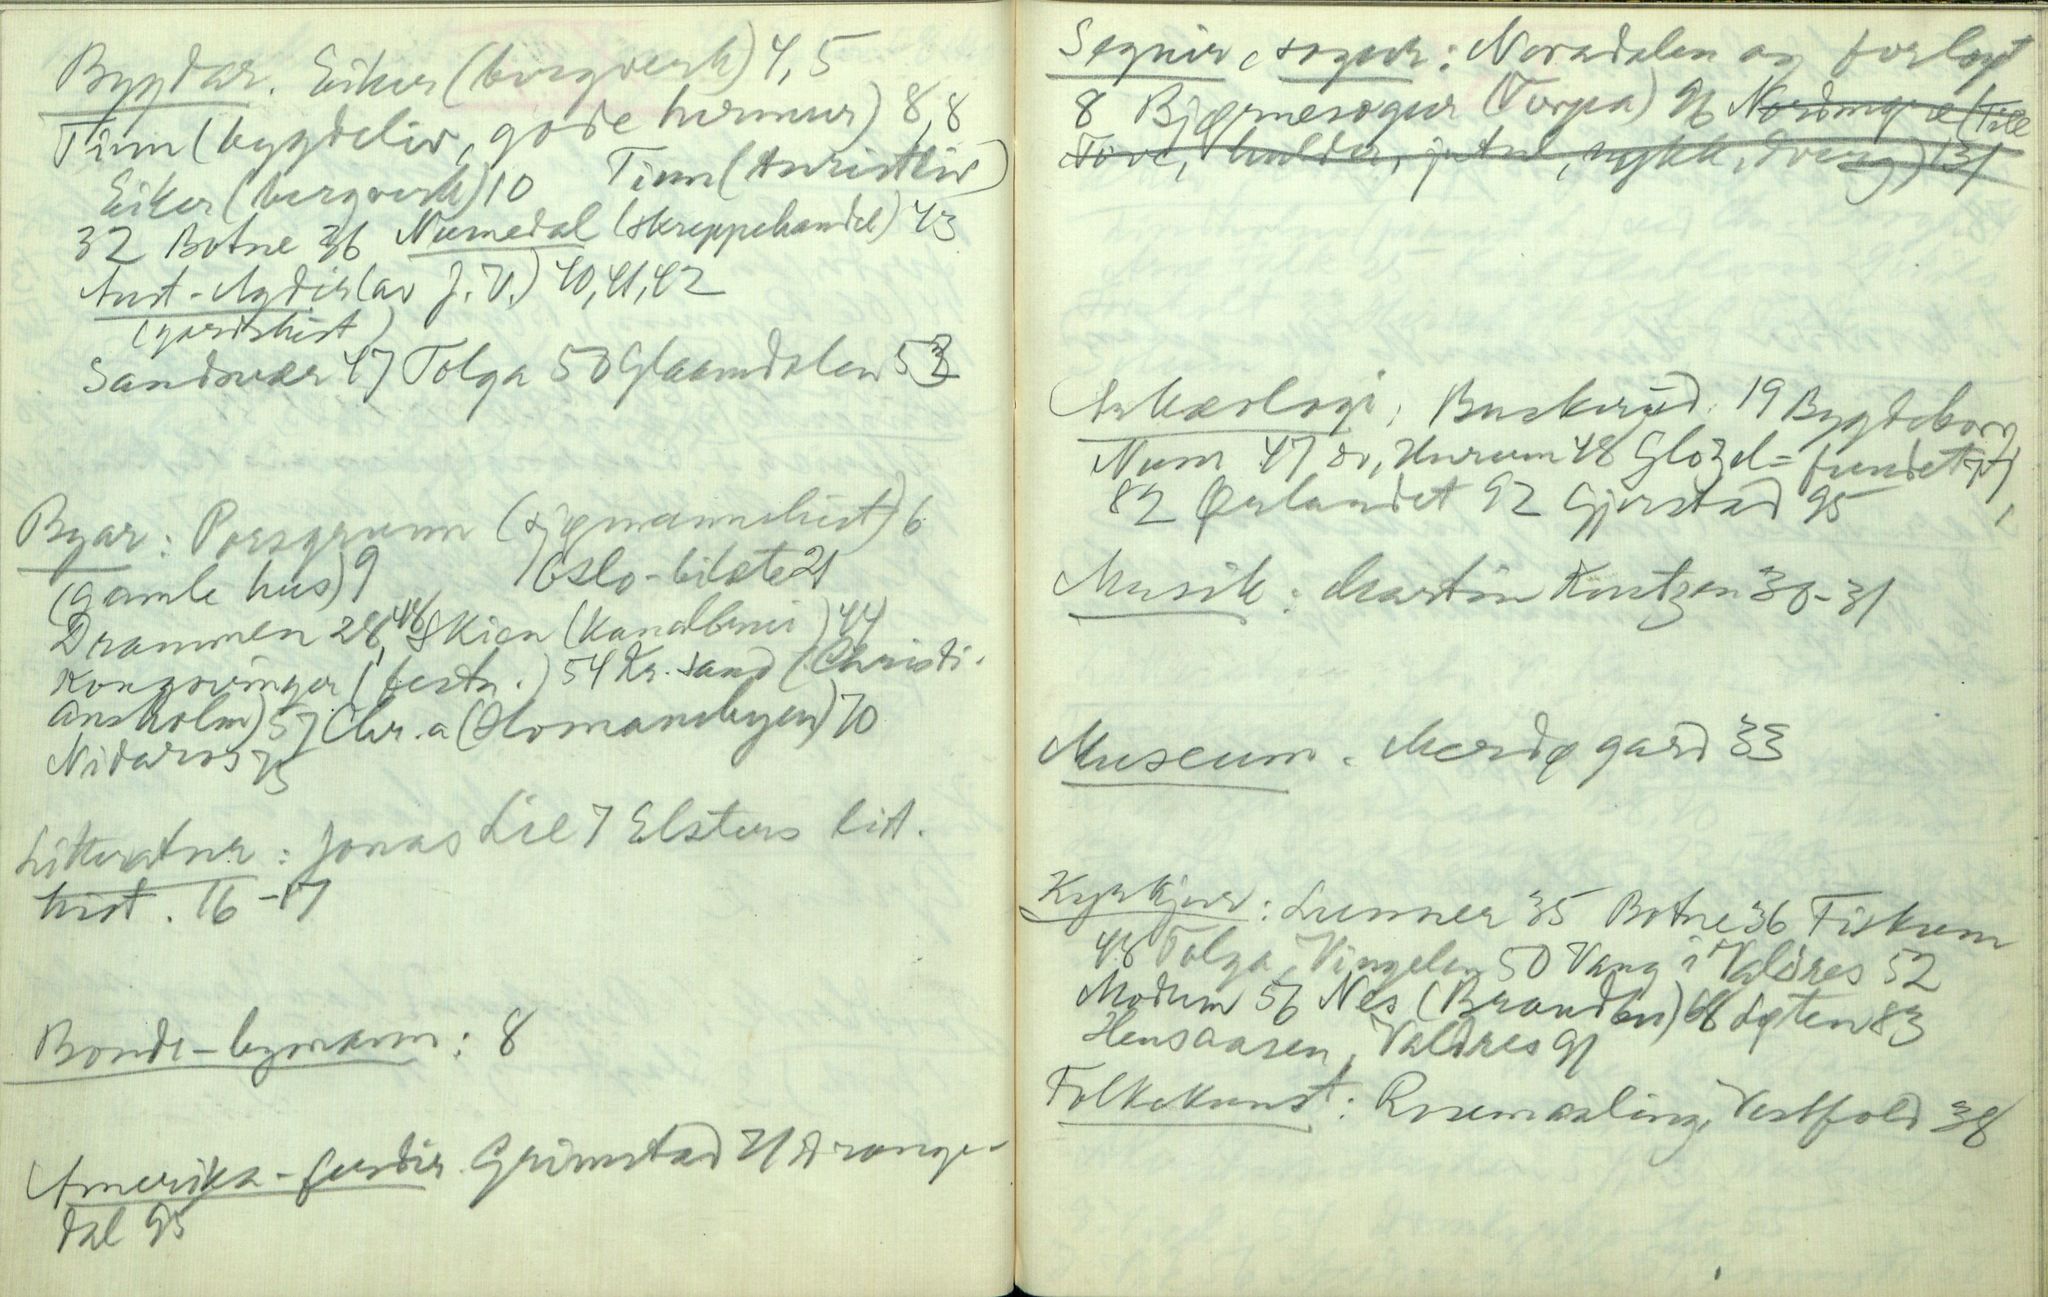 Bygdar. Eiker (bergverk) 4, 5
Tinn (bygdeliv, gode hermur) 8, 8
Eiker (bergverk) 10 Tinn (turistliv)
32 Botne 36 Numedal (skreppehandel) 43
Aust-Agdir (av J. V.) 40, 41, 42
(gardshist)
Sandsvær 47 Tolga 50 Glaamdalen 53
Byar: Porsgrunn (sjømannshist) 6
(gamle hus) 9 Oslo-bilete 21
Drammen 28, 48 Skien (kanalbrui) 44
Kongsvinger (festn.) 54 Kr.sand (Christi-
ansholm) 57 Chr.a (Homansbyen) 70
Nidaros 75
Litteratur: Jonas Lie 7 Elsters litt.
hist. 16-17
Bonde-bymann: 8
Amerika-ferdir. Grimstad 71 Drange-
dal 95
Segnir, sogur: Noradalen og forlagt
8 Bjørnesogur (Torpa) 96 Nordmøre (Tile
Tove, hulder, jutul, nykk, dverg) 131
Arkæologi: Buskerud. 19 Bygdeborg,
Num 47 Hurum 48 Glozel= fundet
82 Ørlandet 92 Gjerstad 95
Musik: Martin Knutzen 30-31
Museum. Merdøgard 33
Kyrkjur: Lunner 35 Botne 36 Fiskum
48 Tolga, Vingelen 50 Vang i Valdres 52
Modum 56 Nes (Brandbu) 68 Løten 83
Hensaasen, Valdres 91
Folkekunst: Rosemaaling, Vestfold 38